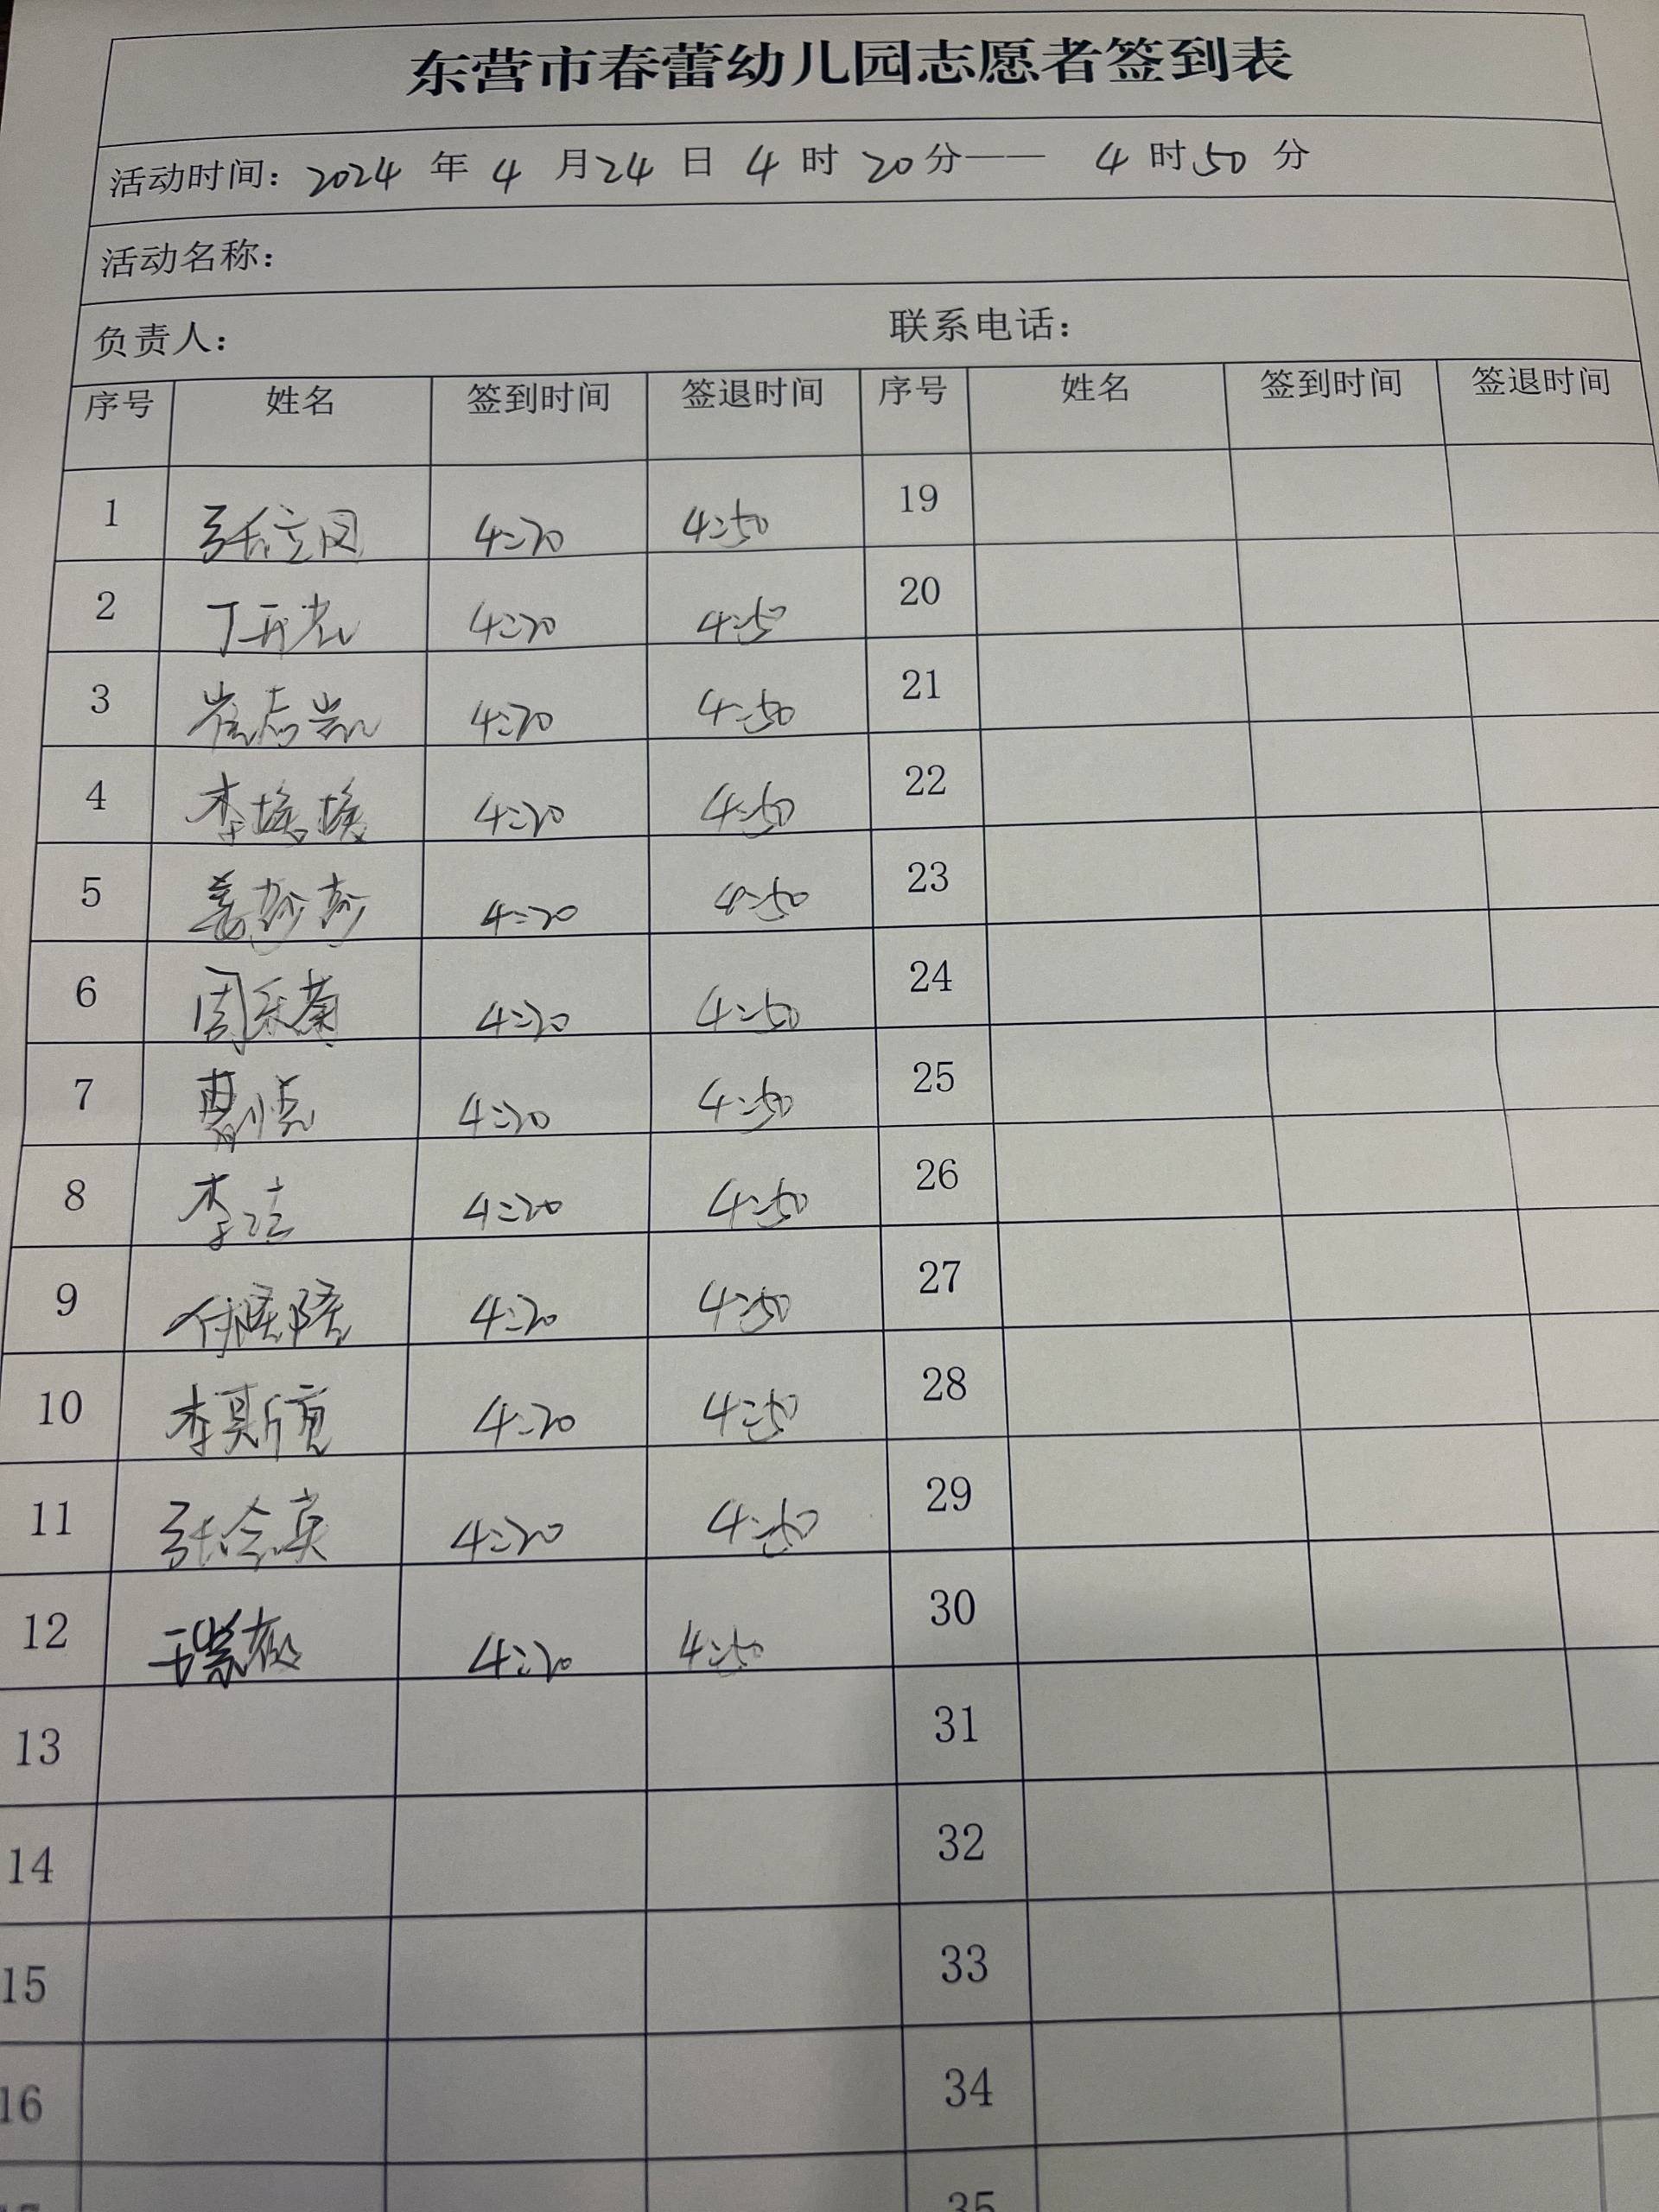 东营市春蕾幼儿园志愿者签到表
活动时间：2024 年 4 月 24 日 4 时 20 分—— 4 时 50 分
活动名称：
负责人： 联系电话：
序号 姓名 签到时间 签退时间 序号 姓名 签到时间 签退时间
1 张立国 4:20 4:50 19
2 丁 4:20 4:50 20
3 崔志岩 4:20 4:50 21
4 李 4:20 4:50 22
5 姜 4:20 4:50 23
6 周乐菊 4:20 4:50 24
7 曹 4:20 4:50 25
8 李 4:20 4:50 26
9 付 4:20 4:50 27
10 李 4:20 4:50 28
11 张 英 4:20 4:50 29
12 4:20 4:50 30
13 31
14 32
15 33
16 34
35